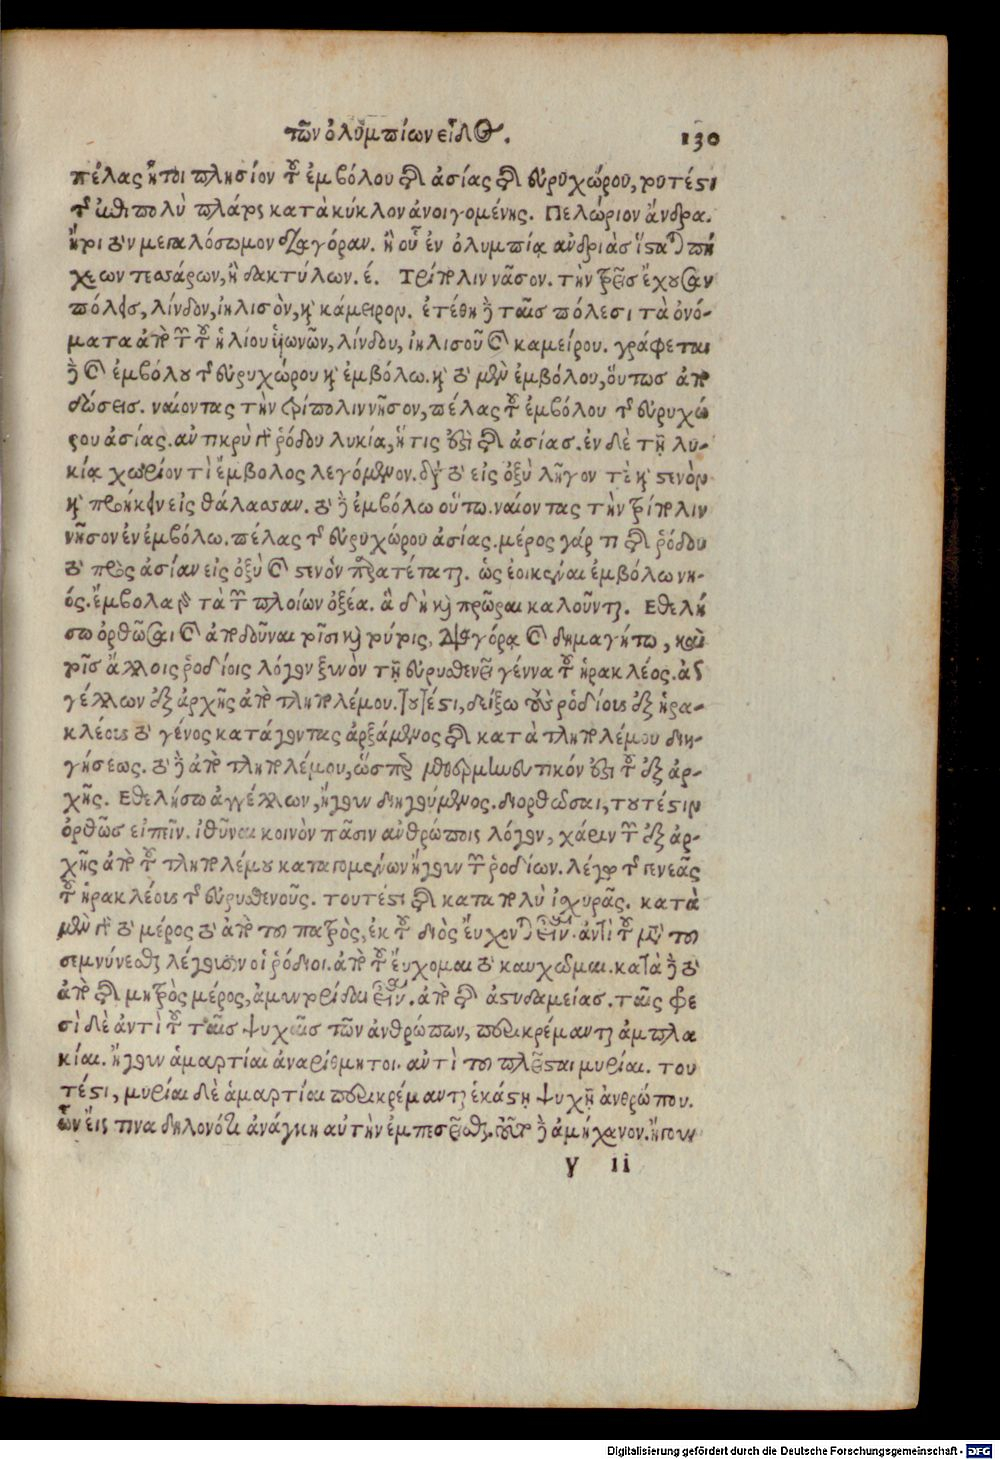 τῶν ὀλυμπίων εἶδος. 130
πέλας ἤτοι πλησίον τοῦ ἐμβόλου τῆς ἀσίας τῆς εὐρυχώρου, τουτέστι
τῆς ἐπιπολὺ πλάτος κατὰ κύκλον ἀνοιγομένης. Πελώριον ἄνδρα.
ἤτοι τὸν μεγαλόσωμον διαγόραν. ἢ οὗ ἐν ὀλυμπίᾳ ἀνδριὰς ἵσταται πή-
χεων τεσσάρων, ἢ δακτύλων. έ. Τρίπολιν νᾶσον. τὴν τρεῖς ἔχουσαν
πόλεις, λίνδον, ἰηλισὸν, καὶ κάμειρον. ἐτέθη δὲ ταῖς πόλεσι τὰ ὀνό-
ματα ἀπὸ τῶν τοῦ ἡλίου ἐγγόνων, λίνδου, ἰηλισοῦ καὶ καμείρου. γράφεται
δὲ καὶ ἐμβόλου τῆς εὐρυχώρου καὶ ἐμβόλω. καὶ τὸ μὲν ἐμβόλου, οὕτως ἀπο
δώσεις. ναίοντας τὴν τρίπολιν νῆσον, πέλας τοῦ ἐμβόλου τῆς εὐρυχώ
ρου ἀσίας. ἀντικρὺ τῆς ῥόδου λυκία, ἥτις ἐστὶ τῆς ἀσίας. ἐν δὲ τῇ λυ-
κίᾳ χωρίον τὶ ἔμβολος λεγόμενον. διὰ τὸ εἰς ὀξὺ λῆγον τὲ καὶ στενὸν
καὶ προήκειν εἰς θάλασσαν. τὸ δὲ ἐμβόλω οὕτω. ναίοντας τὴν τρίπολιν
νῆσον ἐν ἐμβόλω. πέλας τῆς εὐρυχώρου ἀσίας. μέρος γάρ τι τῆς ῥόδου
τὸ πρὸς ἀσίαν εἰς ὀξὺ καὶ στενὸν παρατέταται. ὡς ἐοικέναι ἐμβόλω νη-
ός. ἔμβολα γὰρ τὰ τῶν πλοίων ὀξέα. ἃ δὴ καὶ πρῶραι καλοῦνται. Εθελή
σω ὀρθῶσαι καὶ ἀποδοῦναι τοῖσι καὶ τούτοις, διαγόρᾳ καὶ δημαγήτω, καὶ
τοῖς ἄλλοις ῥοδίοις λόγον ξυνὸν τῇ εὐρυσθενεῖ γέννᾳ τοῦ ἡρακλέος. ἀγ
γέλλων ἐξ ἀρχῆς ἀπὸ τληπολέμου. τουτέστι, δείξω τοὺς ῥοδίους ἐξ ἡρα-
κλέους τὸ γένος κατάγοντας ἀρξάμενος τῆς κατὰ τληπολέμου διη-
γήσεως. τὸ δὲ ἀπὸ τληπολέμου, ὥσπερ ἐστὶ τοῦ ἐξ ἀρ-
χῆς. Εθελήσω ἀγγέλλων, ἤγουν διηγούμενος. διορθῶσαι, τουτέστιν
ὀρθῶς εἰπεῖν. ἰθῦναι κοινὸν πᾶσιν ἀνθρώποις λόγον, χάριν τῶν ἐξ ἀρ-
χῆς ἀπὸ τοῦ τληπολέμου καταγομένων ἤγουν τῶν ῥοδίων. λέγω τῆς γενεᾶς
τοῦ ἡρακλέους τῆς εὐρυσθενοῦς. τουτέστι τῆς καταπολὺ ἰσχυρᾶς. κατὰ
μὲν γὰρ τὸ μέρος τὸ ἀπὸ τοῦ πατρὸς, ἐκ τοῦ διὸς εὔχονται εἶναι. ἀντὶ τοῦ μετὰ τοῦ
σεμνύνεσθαι λέγουσιν οἱ ῥόδιοι. ἀπὸ τοῦ εὔχομαι τὸ καυχῶμαι. κατὰ δὲ τὸ
ἀπὸ τῆς μητρὸς μέρος, ἀμυντορίδαι εἶναι. ἀπὸ τῆς ἀστυδαμείας. ταῖς φρε
σὶ δὲ ἀντὶ τοῦ ταῖς ψυχαῖς τῶν ἀνθρώπων, περικρέμανται ἀμπλα
κίαι. ἤγουν ἁμαρτίαι ἀναρίθμητοι. ἀντὶ τοῦ πλεῖσται μυρίαι. του
τέστι, μυρίαι δὲ ἁμαρτίαι περικρέμανται ἑκάστῃ ψυχῇ ἀνθρώπου.
ὧν εἴς τινα δηλονότι ἀνάγκη αὐτὴν ἐμπεσεῖσθαι. τοῦτο δὲ ἀμήχανον. ἤγουν
γ ii
Digitalisierung gefördert durch die Deutsche Forschungsgemeinschaft - DFG